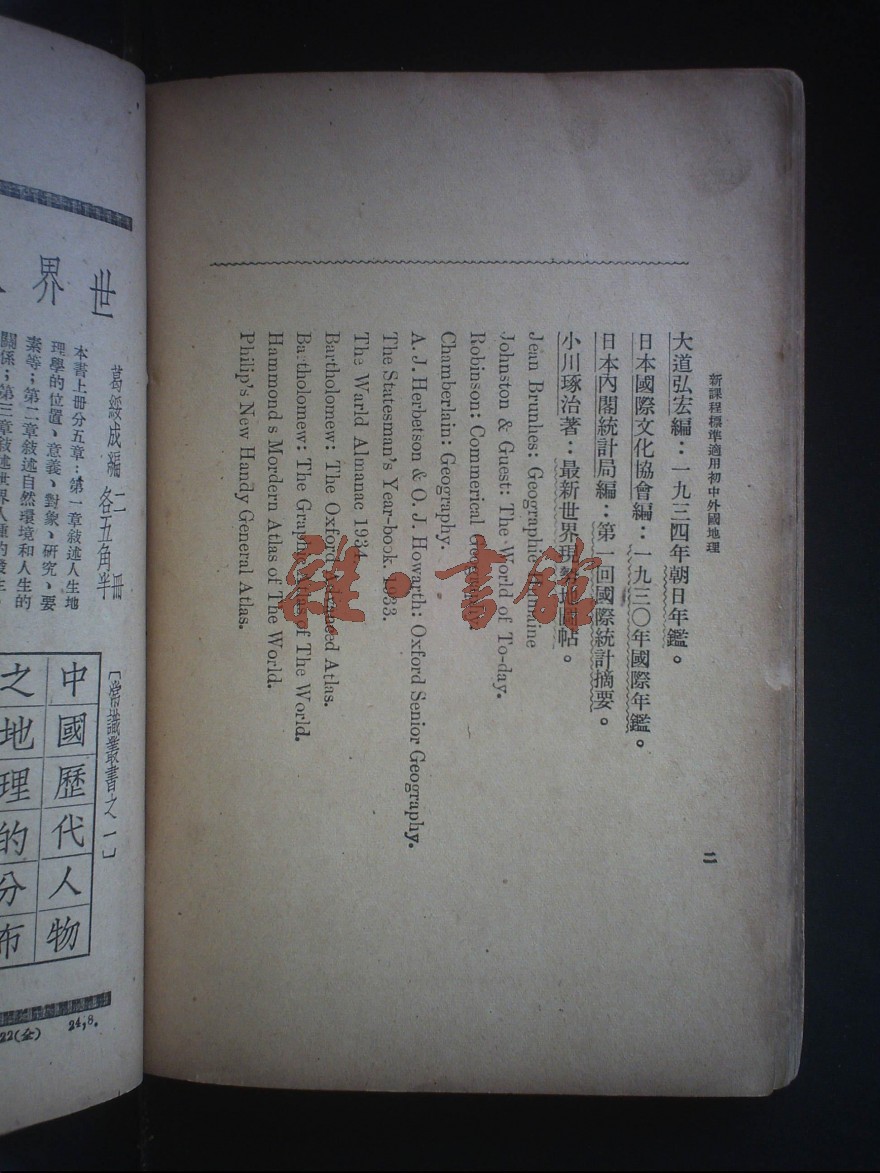 新課程標準適用初中外國地理
二
大道弘宏編：一九三四年朝日年鑑。
日本國際文化協會編：一九三〇年國際年鑑。
日本內閣統計局編：第一回國際統計摘要。
小川琢治著：最新世界現勢地圖帖。
Jean Brunhes: Geographie Humaine
Johnston & Guest: The World of To-day.
Robinson: Commerical Geography.
Chamberlain: Geography.
A. J. Herbetson & O. J. Howarth: Oxford Senior Geography.
The Statesman's Year-book. 1933.
The World Almanac 1934.
Bartholomew: The Oxford Advanced Atlas.
Bartholomew: The Graphic Atlas of The World.
Hammond s Mordern Atlas of The World.
Philip's New Handy General Atlas.
雜·書館
世界
葛綏成編
二冊
各五角半
本書上冊分五章：第一章敍述人生地
理學的位置、意義、對象、研究、要
素等；第二章敍述自然環境和人生的
關係；第三章敍述世界人種的發生、
〔常識叢書之一〕
中國歷代人物
之地理的分布
22(全)
24,8.